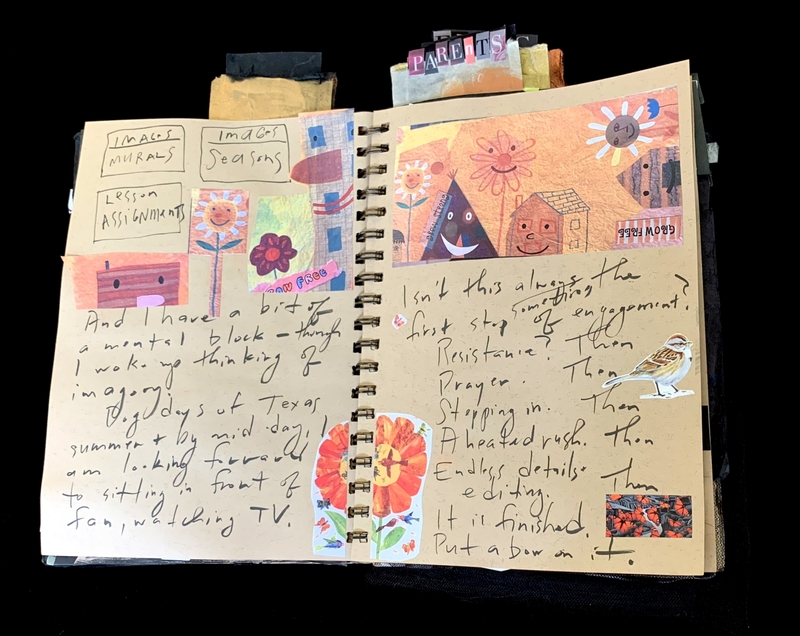 PARENTS
IMAGES
MURALS
IMAGES
SEASONS
LESSON
ASSIGNMENTS
GROW FREE
And I have a bit of
a mental block – though
I woke up thinking of
imagery.
Dog days of Texas
summer + by mid-day, I
am looking forward
to sitting in front of
fan, watching TV.
GROW FREE
Isn't this always the
first step something of engagement?
Resistance? Then
Prayer. Then
Stepping in. Then
A heated rush. Then
Endless details + Then
editing.
It is finished.
Put a bow on it.